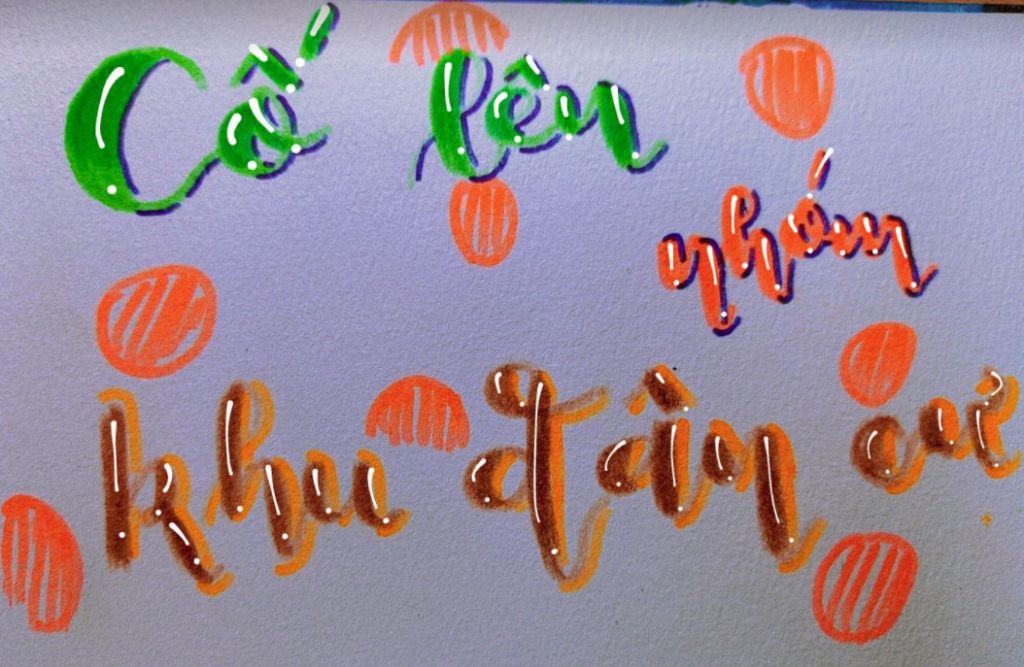 Cố lên
nhóm
khu đân cư